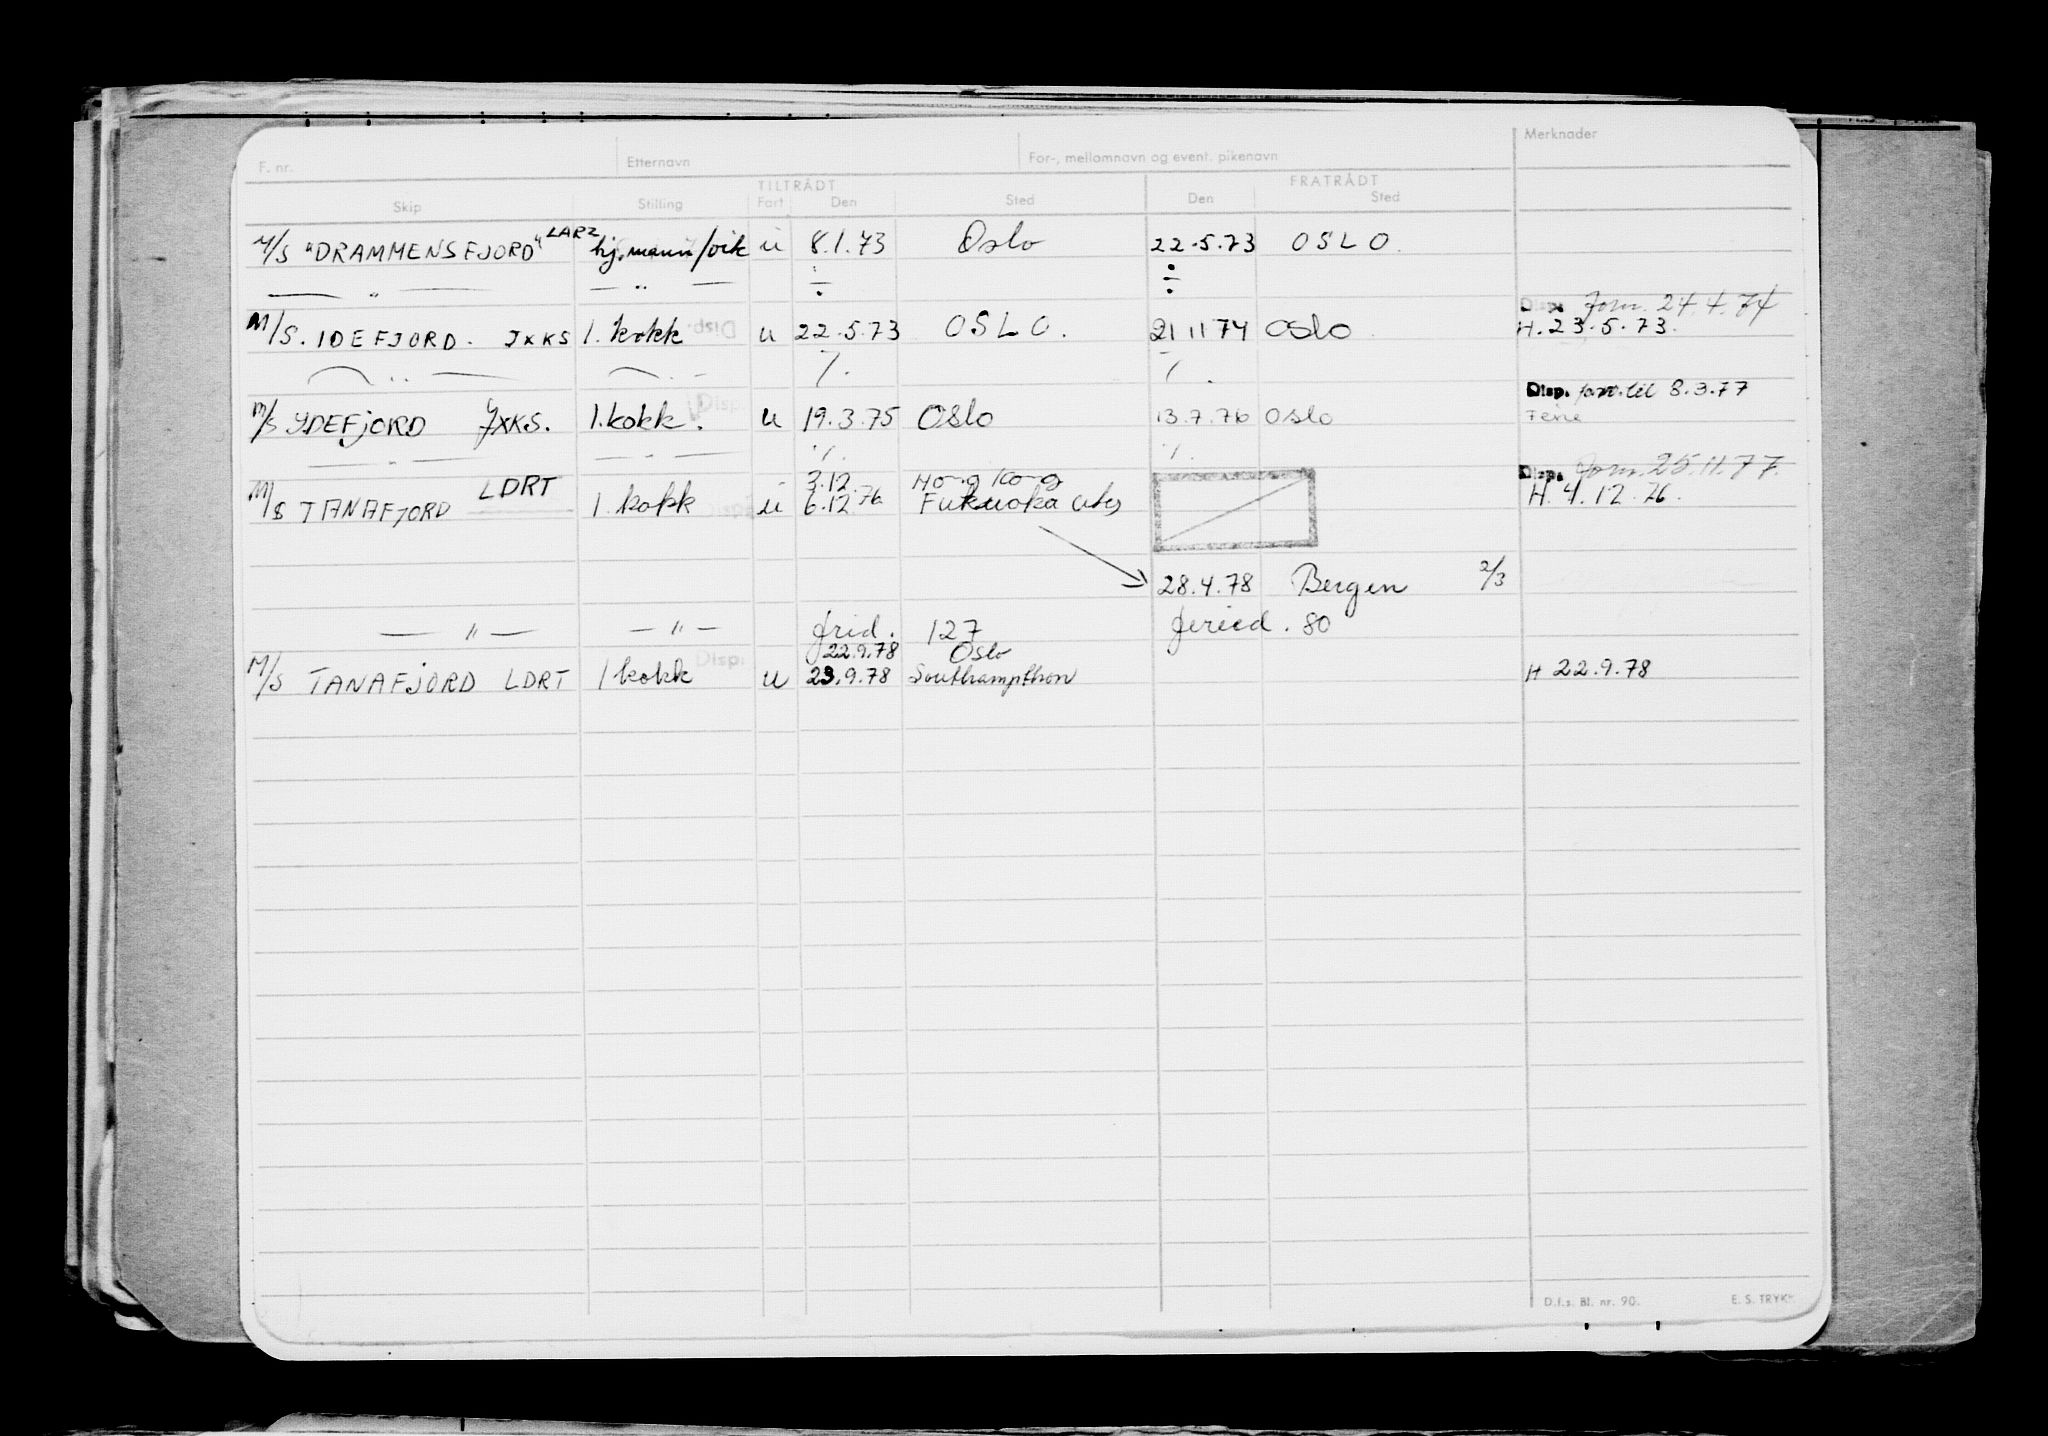 F. nr. Etternavn For-, mellomnavn og event. pikenavn Merknader
TILTRÅDT FRATRÅDT
Skip Stilling Fart Den Sted Den Sted
M/S "DRAMMENSFJORD" LARZ hj.mann/vik ü 8.1.73 Oslo 22.5.73 OSLO.
— " — — " — ÷ ÷
Disp. Fom. 24.4.74
M/S. IDEFJORD. JXKS 1. kokk u 22.5.73 OSLO. 21 11 74 Oslo H. 23.5.73.
— " — — " — ·/. ·/.
Disp. fom. til 8.3.77
M/S YDEFJORD JXKS. 1. kokk. u 19.3.75 Oslo 13.7.76 Oslo Ferie
— " — — " — ·/. ·/.
LDRT 3.12. Hong Kong Disp. Fom. 25.11.77.
M/S TANAFJORD 1. kokk ü 6.12 76 Fukuoka H. 4.12.76.
28.4.78 Bergen 2/3
— " — — " — frid. 127 feried. 80
22.9.78 Oslo
M/S TANAFJORD LDRT 1 kokk u 23.9.78 Southampthon H 22.9.78
D.f.s. Bl. nr. 90. E. S. TRYKK